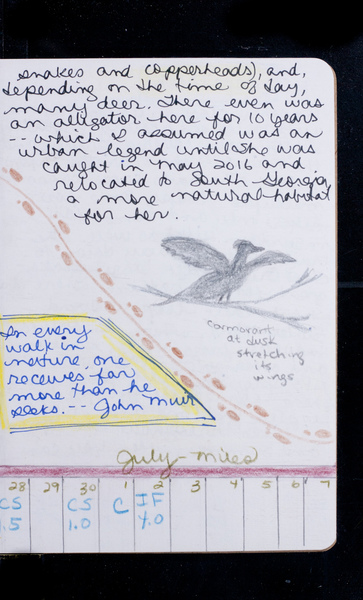 snakes and copperheads), and,
depending on the time of day,
many deer. There even was
an alligator here for 10 years
-- which I assumed was an
urban legend until she was
caught in May 2016 and
relocated to South Georgia
a more natural habitat
for her.
cormorant
at dusk
stretching
its
wings
In every
walk in
nature one
receives far
more than he
seeks. -- John Muir
July - miles
28 29 30 1 2 3 4 5 6 7
CS CS C IF
1.5 1.0 4.0